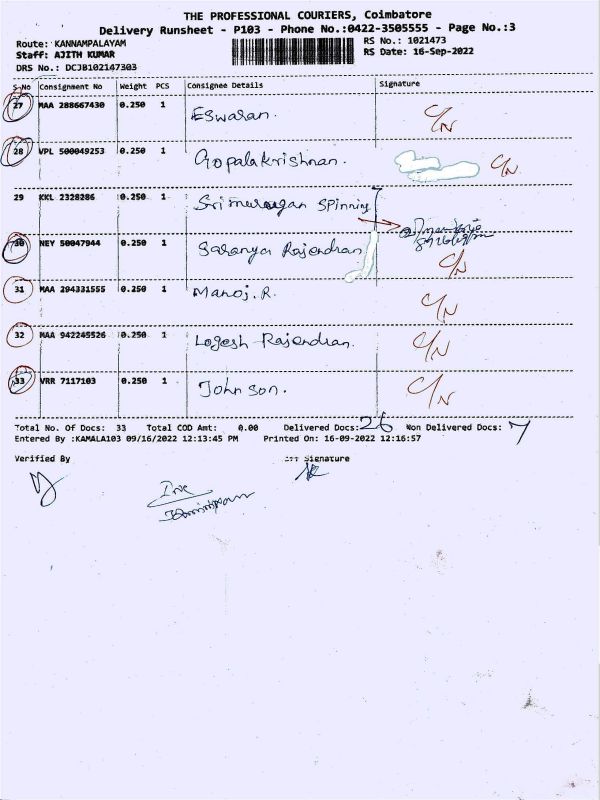 THE PROFESSIONAL COURIERS, Coimbatore
Delivery Runsheet - P103 - Phone No.:0422-3505555 - Page No.:3
Route: KANNAMPALAYAM RS No.: 1021473
Staff: AJITH KUMAR RS Date: 16-Sep-2022
DRS No.: DCJB102147303
S-No Consignment No Weight PCS Consignee Details Signature
27 MAA 288667430 0.250 1 Eswaran. C/N
28 VPL 500049253 0.250 1 Gopalakrishnan. C/N
29 KKL 2328286 0.250 1 Sri murugan Spinning
30 NEY 50047944 0.250 1 Saranya Rajendran C/N
31 MAA 294331555 0.250 1 Manoj.R. C/N
32 MAA 942245526 0.250 1 Logesh Rajendran. C/N
33 VRR 7117103 0.250 1 Johnson. C/N
Total No. Of Docs: 33 Total COD Amt: 0.00 Delivered Docs: 26 Non Delivered Docs: 7
Entered By :KAMALA103 09/16/2022 12:13:45 PM Printed On: 16-09-2022 12:16:57
Verified By Signature